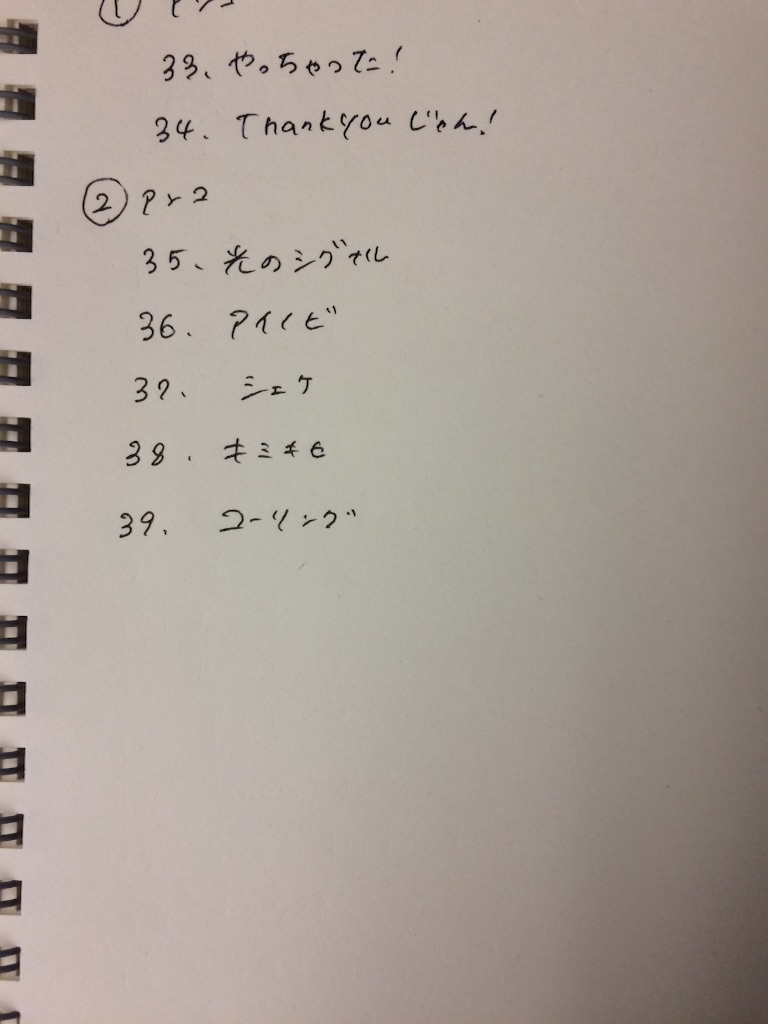 ① アンコ
33、やっちゃった!
34. Thank you じゃん!
② アンコ
35、光のシグナル
36. アイノビ
37、シェケ
38. キミキセ
39. コーリング